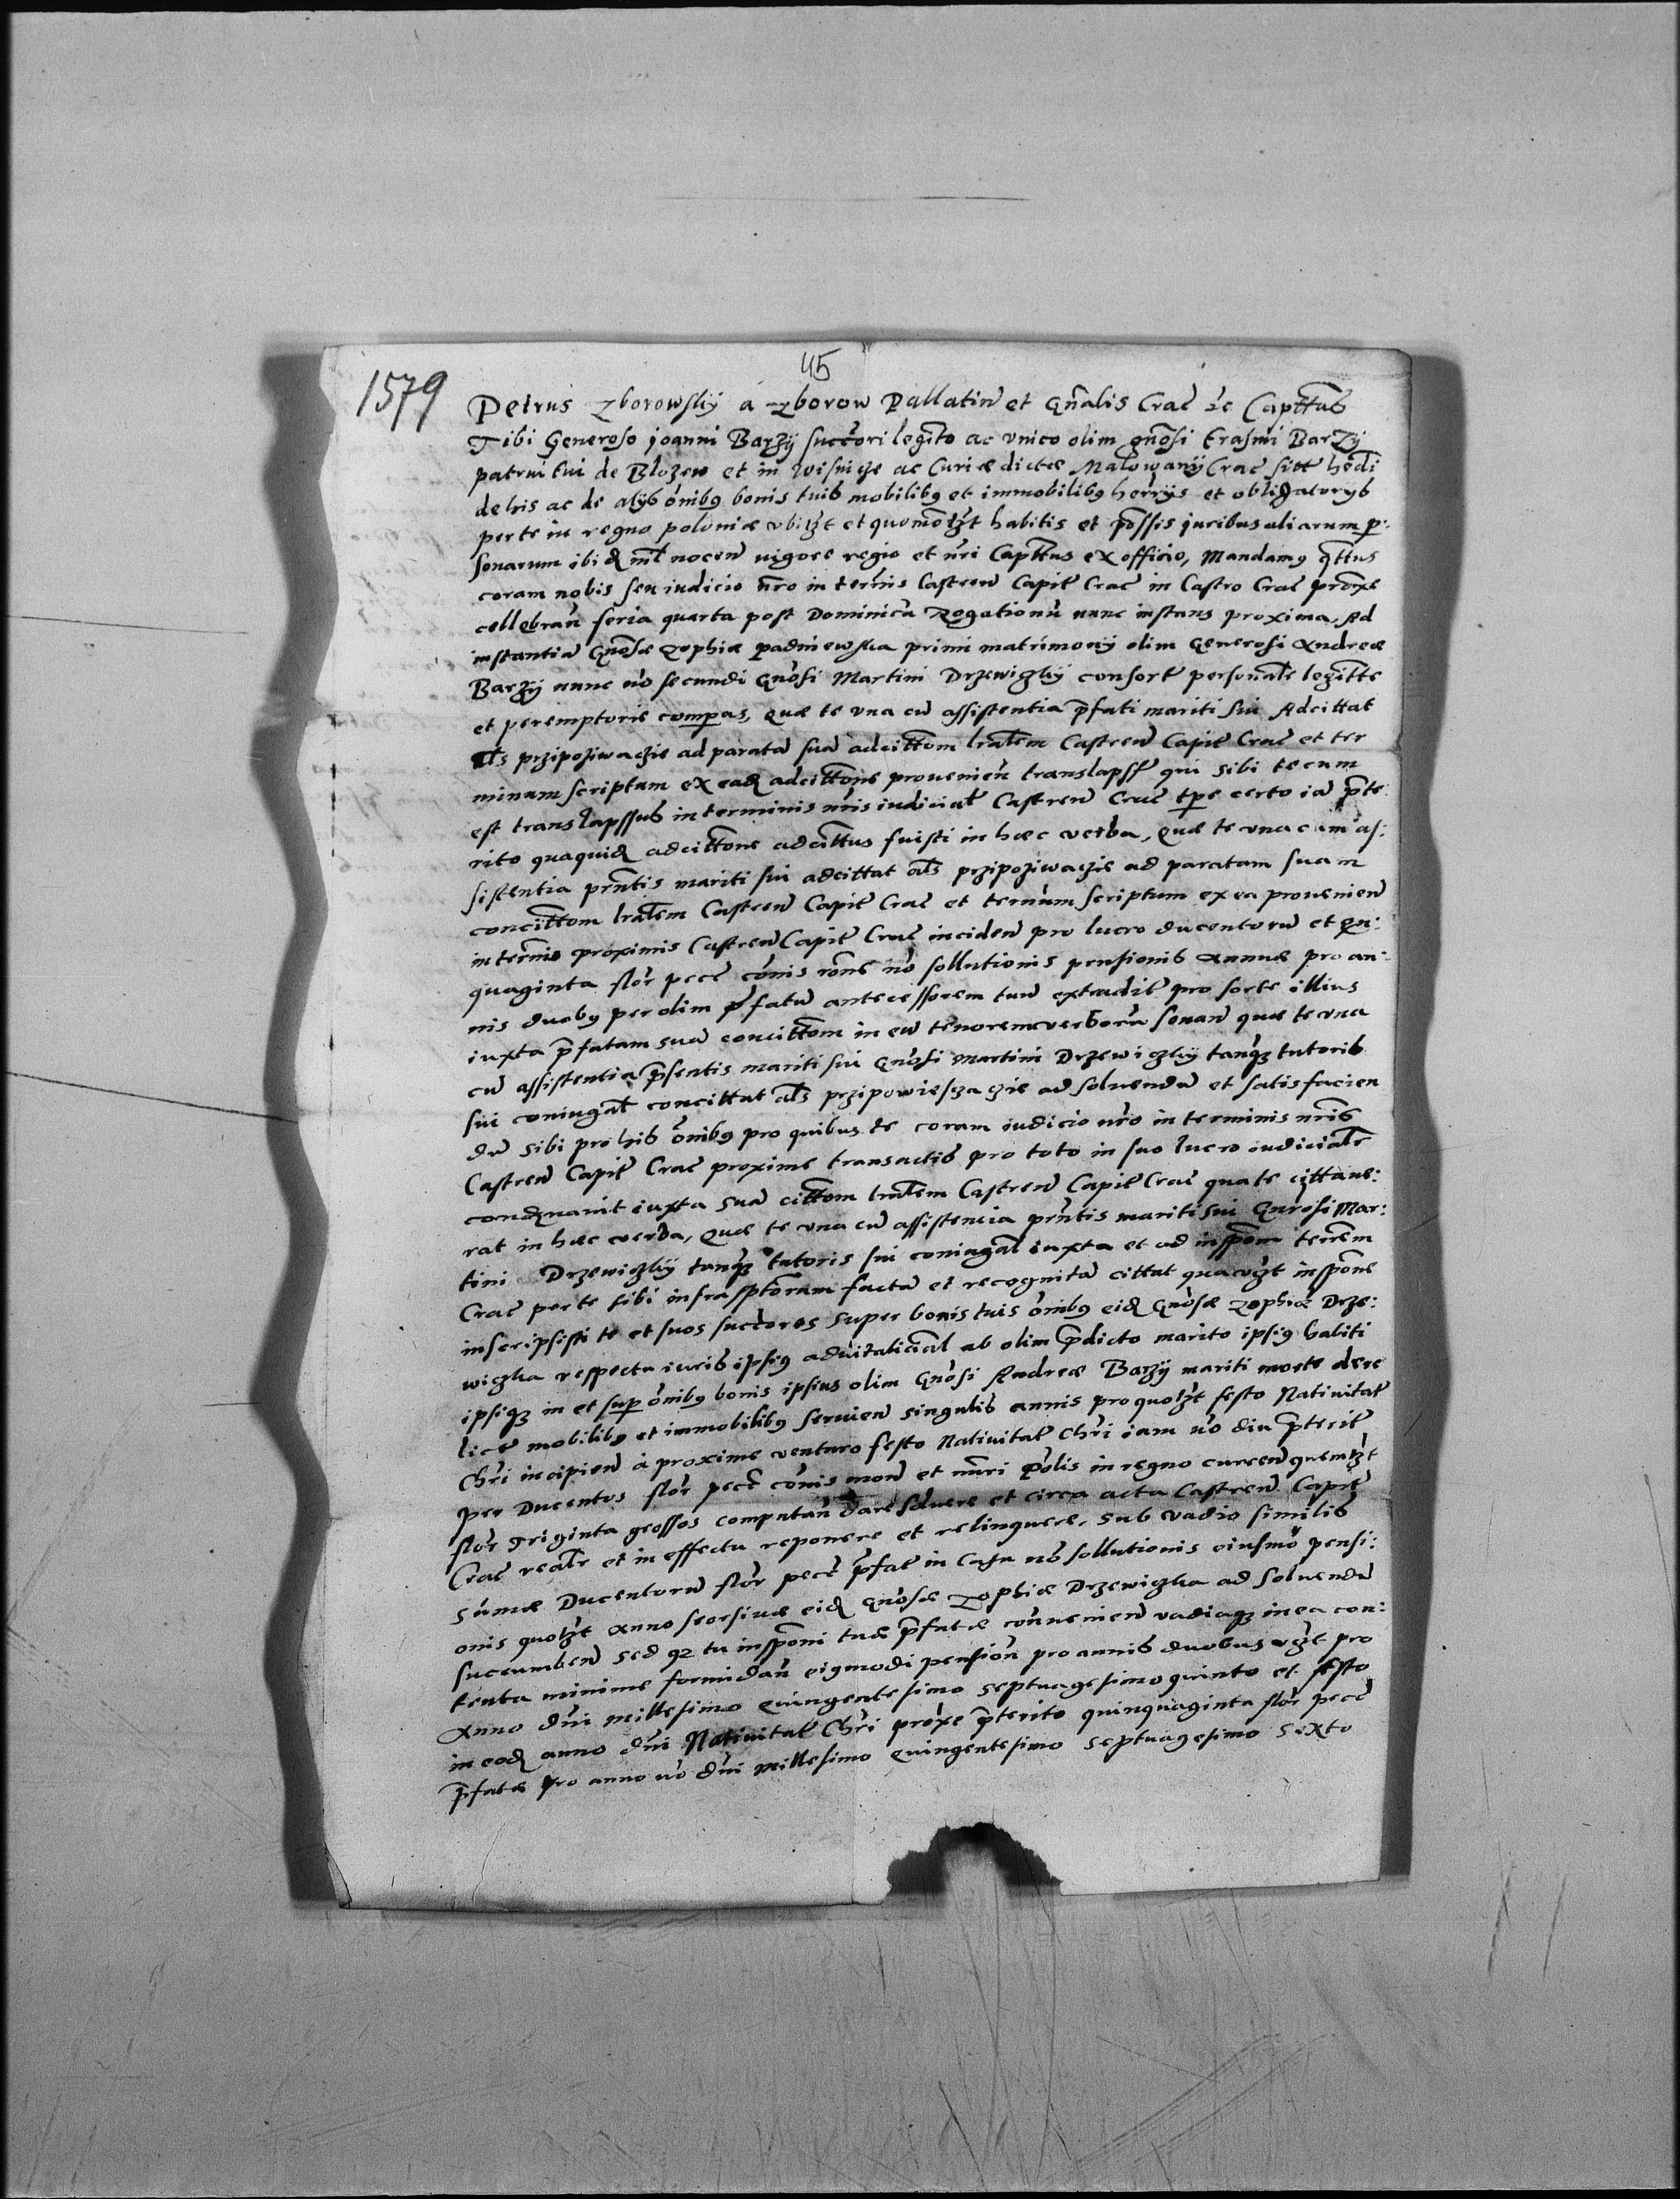 45
1579
Petrus Zborowskÿ a Zborow Pallatin̄ et Gn̄alis Crac̄ ꝛc Capttn̄s
Tibi Generoso Joanni Barzÿ succōri legitto ac vnico olim gnōsi Erasmi Barzÿ
patrui tui de Blozew et in Wisnicze ac Curiæ dictæ Malowanÿ Crac̄ sitt hōdi
de his ac de alÿs ōnibꝫ bonis tuis mobilibꝫ et immobilibꝫ herrÿs et obligatorÿs
per te in regno poloniæ vbilꝫt et quomōlꝫt habitis et possīs juribus aliarum per:
sonarum ibidꝫ nil nocen̄ vigore regio et nr̄i Capttus ex officio, Mandamꝫ qttus
coram nobis seu iudicio nr̄o in term̄is Castren̄ Capit̄ Crac̄ in Castro Crac̄ proxē
cellebran̄ feria quarta post Dominicā Rogationū nunc instans proxima, Ad
instantiā Gnōsæ Zophiæ Padniewska primi matrimonÿ olim Generosi Andreæ
Barzÿ nunc v̄o secundi Gnōsi Martini Drzewiczkÿ consort̄ personalr̄ legittē
et peremptorie compas, quæ te vna cū assistentia p̄fati mariti sui Adcittat
als̄ przipoziwaczie ad paratā suā adcittōm lrālem Castren̄ Capit̄ Crac̄ et ter
minum scriptum ex eadꝫ adcittōne prouenien̄ translapss̄ qui sibi tecum
est translapssus in terminis nr̄is iudicial̄ Castren̄ Crac̄ tp̄e certo iā p̄te:
rito quaquidꝫ adcittōne adcittus fuisti in hæc verba, Quæ te vna cum as:
sistentia pr̄ntis mariti sui adcittat als̄ przipoziwaczie ad paratam suam
concittōm lrālem Castren̄ Capit̄ Crac̄ et term̄um scriptum ex ea prouenien̄
in term̄is proximis Castren̄ Capit̄ Crac̄ inciden̄ pro lucro ducentorū et qn:
quaginta flor̄ pecc̄ cōis rōne nō sollutionis pensionis annuæ pro an:
nis duobꝫ per olim p̄fatū antecessorem tuū extradit̄ pro sorte illius
iuxta p̄fatam suā concittōm in eū tenorem verborū sonan̄ quæ te vna
cū assistentia p̄sentis mariti sui Gnōsi Martini Drzewiczkÿ tanqꝫ tutoris
sui coniugal̄ concittat als̄ przipowieszczaczie ad soluendū et satisfacien
dū sibi pro his ōnibꝫ pro quibus te coram iudicio nr̄o in terminis nr̄is
Castren̄ Capit̄ Crac̄ proxime transactis pro toto in suo lucro iudicialr̄
condꝫnauit iuxta suā cittōm lrālem Castren̄ Capit̄ Crac̄ qua te cittaue:
rat in hæc verba, Quæ te vna cū assistencia pr̄ntis mariti sui Gnrōsi Mar:
tini Drzewiczkÿ tanqꝫ tutoris sui coniugal̄ iuxta et ad inspp̄om terrēm
Crac̄ per te sibi infrasptōrum factā et recognitā cittat quavꝫt inspp̄one
inscripsisti te et suos succōres super bonis tuis ōnibꝫ eidꝫ Gnōsæ Zophiæ Drze:
wiczka respectu iuris ipsiꝫ aduitalicial̄ ab olim p̄dicto marito ipsiꝫ habiti
ipsiqꝫ in et sup ōnibꝫ bonis ipsius olim Gnōsi Andreæ Barzÿ mariti morte dere
lict̄ mobilibꝫ et immobilibꝫ seruien̄ singulis annis pro quolꝫt festo Natiuitat̄
Chr̄i incipien̄ à proxime venturo festo Natiuitat̄ Chr̄i iam v̄o diu p̄terit̄
per Ducentos flor̄ pecc̄ cōis mon̄ et nūri polis in regno curren̄ quemlꝫt
flor̄ Triginta grossos computan̄ dare soluere et circa acta Castren̄ Capit̄
Crac̄ realr̄ et in effectu reponere et relinquere, sub vadio similis
sumæ Ducentorū flor̄ pecc̄ p̄fat̄ in Casu nō sollutionis eiusmō pensi:
onis quolꝫt anno seorsiuæ eidꝫ Gnōsæ Zophiæ Drzewiczka ad soluendū
succumben̄ sed qꝫ tu inspp̄oni tuæ p̄fatæ conuenien̄ vadiaqꝫ in ea con:
tenta minime formidan̄ eiꝫmodi pension̄ pro annis duobus vꝫt pro
Anno dn̄i Millesimo Quingentesimo septuagesimo quinto et festo
in eodꝫ anno dn̄i Natiuitat̄ Chr̄i proxe p̄terito quinquaginta flor̄ pecc̄
p̄fatæ pro anno v̄o dn̄i Millesimo Quingentesimo septuagesimo sexto